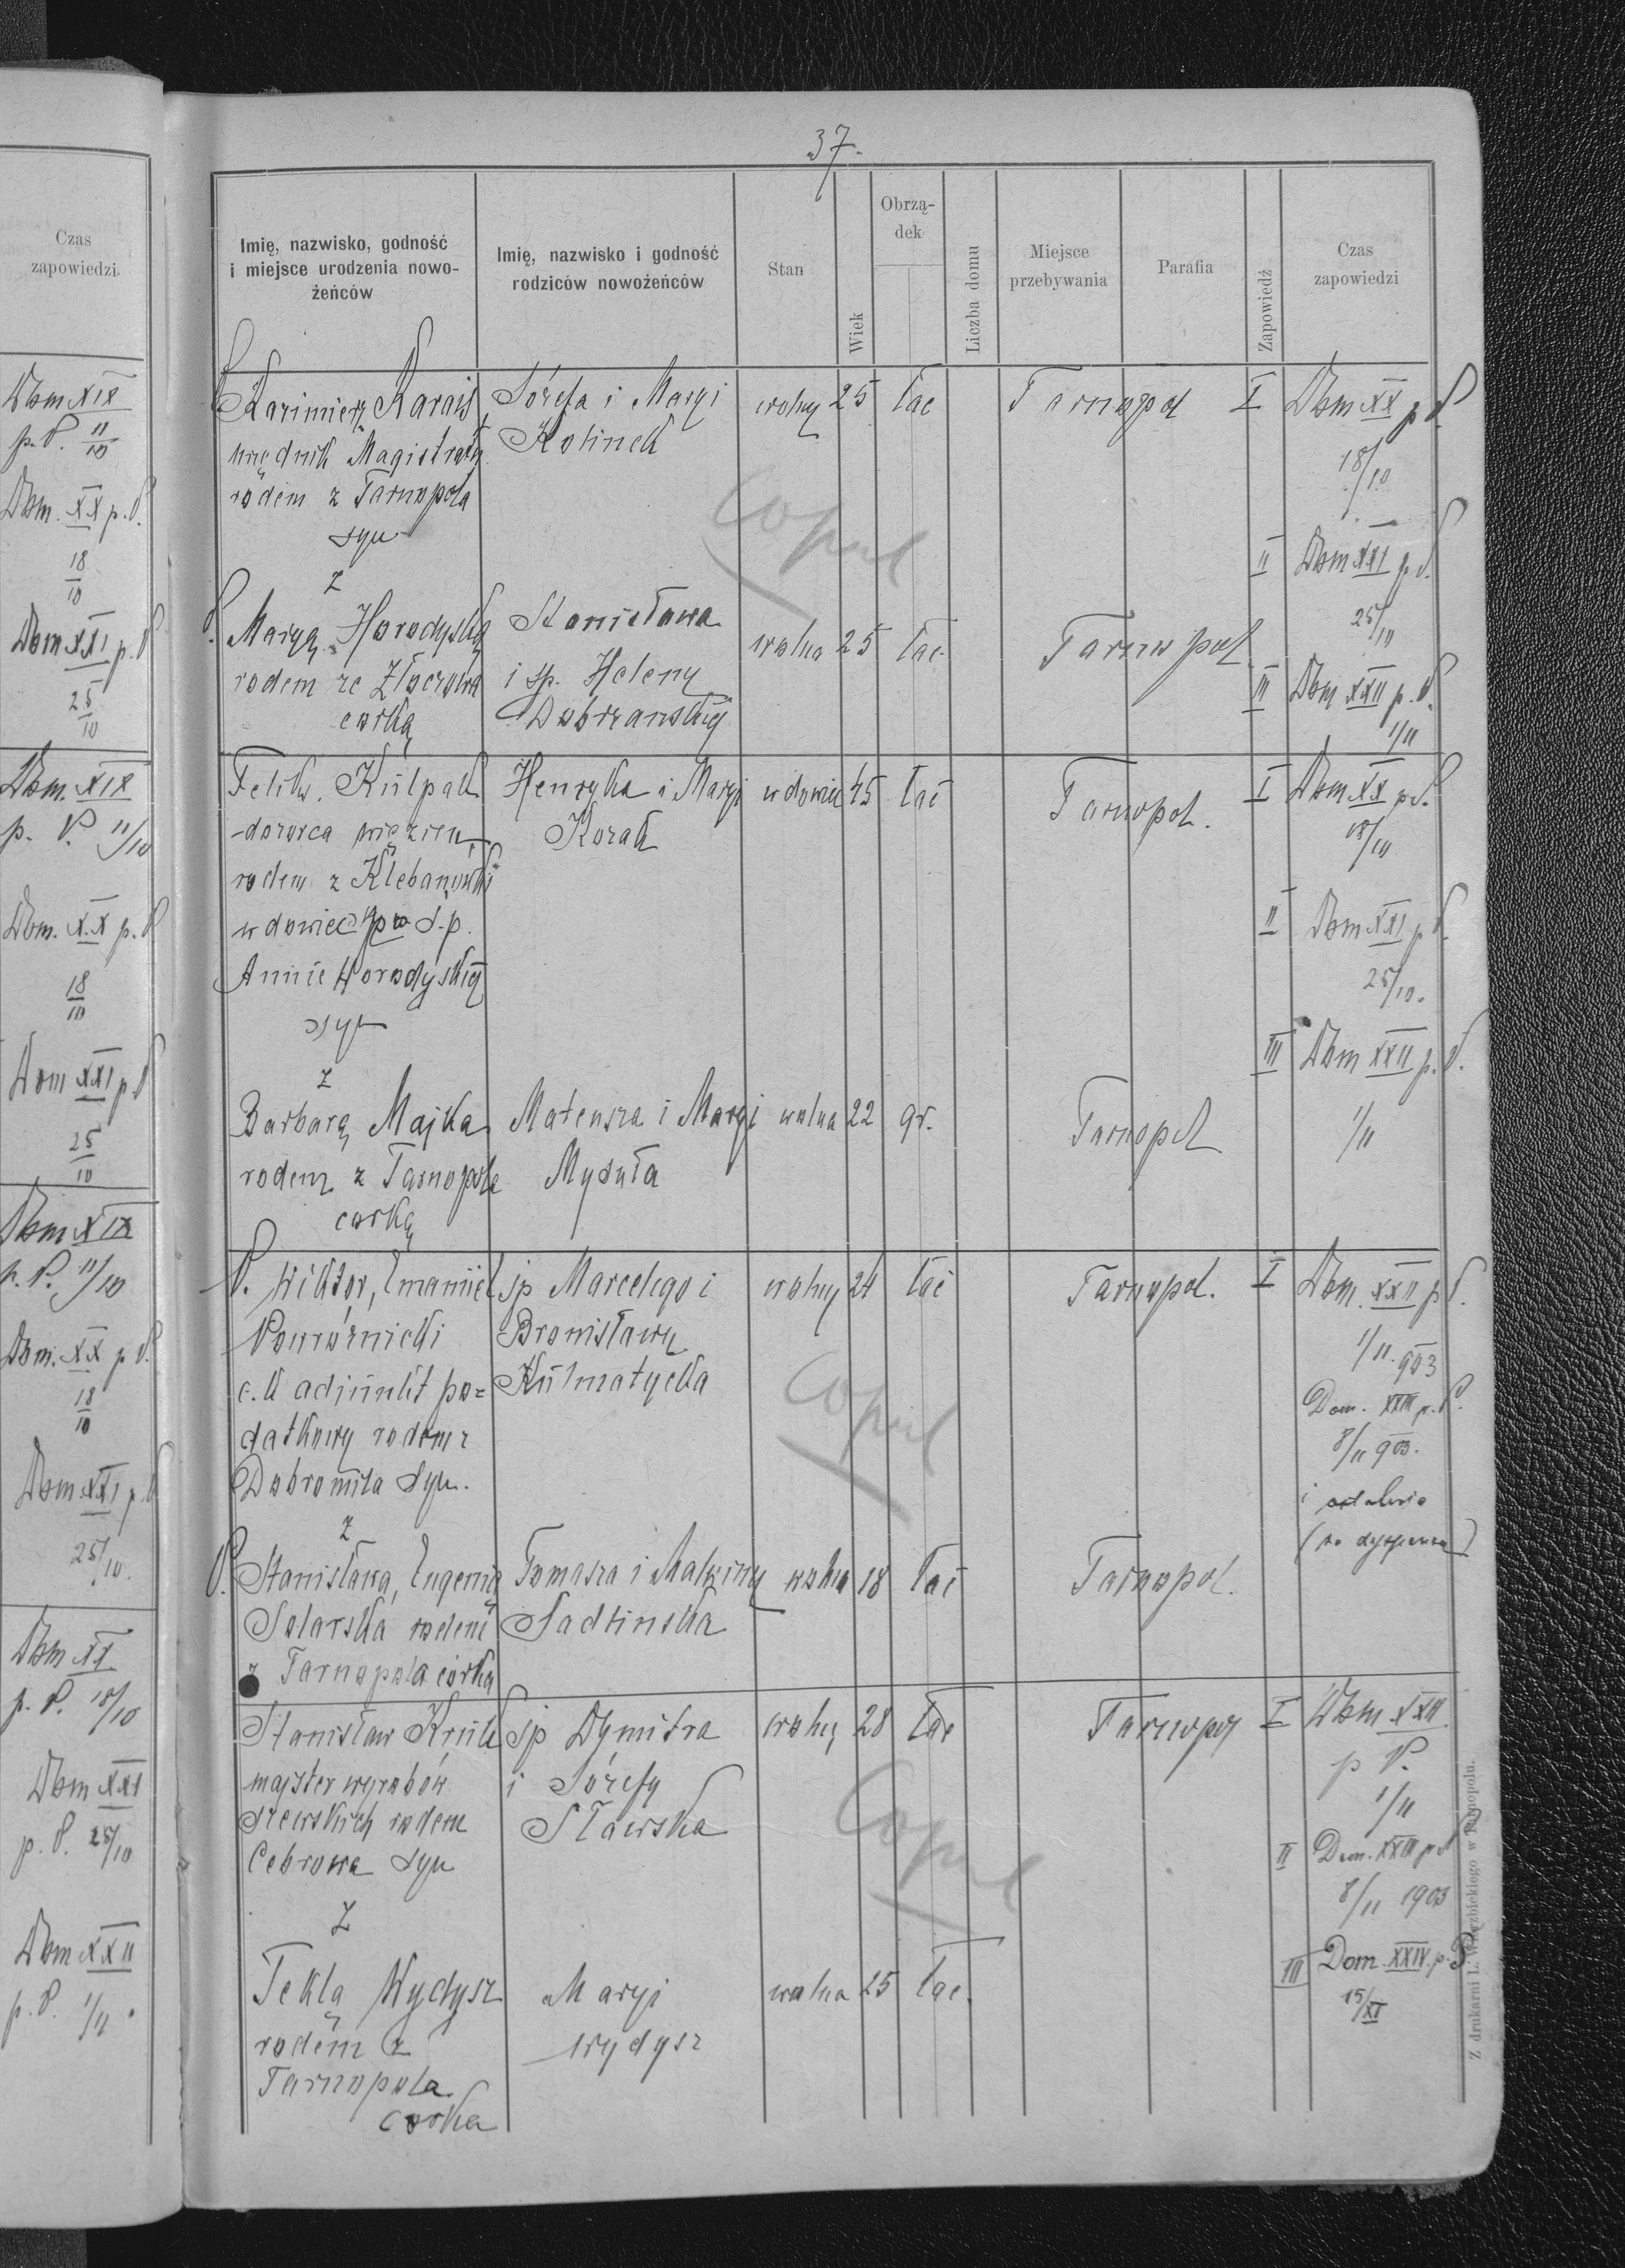 Czas
zapowiedzi.
Dom XIX
p. P. 11/10
Dom. XX p. P.
18/10
Dom XXI p. P
25/10
Dom. XIX
p. P. 11/10
Dom. XX p. P
18/10
Dom XXI p P
25/10
Dom XIX
p. P. 11/10
Dom. XX p P.
18/10
Dom. XXI p. P
25/10.
Dom XX
p. P. 18/10
Dom XXI
p. P. 25/10
Dom XXII
p. P. 1/11.
37.
Imię, nazwisko, godność
i miejsce urodzenia nowo-
żeńców
Imię, nazwisko i godność
rodziców nowożeńców
Stan
Wiek
Obrzą-
dek
Liczba domu
Miejsce
przebywania
Parafia
Zapowiedź
Czas
zapowiedzi
P. Kazimierz Karais Józefa i Maryi wolny 25 łac Tarnopol I Dom XX p P.
urzędnik Magistratu Kolinek
rodem z Tarnopola 18/10
syn
copul
II Dom XXI p P.
z
25/10
P. Maryą Horodyską Stanisława wolna 25 łac. Tarnopol
rodem ze Złoczowa i śp. Heleny III Dom XXII p. P.
corką Dobrzanskiej 1/11
Felik. Kulpak Henryka i Maryi wdowiec 45 łac Tarnopol. I Dom XX p P.
dozorca więzien. Kozak 18/10
rodem z Klebanówki
wdowiec po ś.p. II Dom XXI p P.
Annie Horodyskiej 25/10.
syn III Dom XXII p. P.
z
Barbarą Majka Mateusza i Maryi wolna 22 gr. Tarnopol 1/11
rodem z Tarnopola Mysuła
corką
P. Wiktor, Emanuel śp Marcelego i wolny 24 łac Tarnopol. I Dom. XXII p P.
Powroźnicki Bronisławy 1/11. 903
c. k adjunkt po= Kulmatycka Dom. XXIII p. P.
datkowy rodem z copul 8/11 903.
Dobromila syn.
z
P. Stanisławą, Eugenią Tomasza i Malwiny wolna 18 łac Tarnopol.
Solarska rodem Sadlinska
z Tarnopola córką
Stanisław Kruk śp Dymitra wolny 28 łac Tarnopol I Dom XXII
majster wyrobów i Józefy p P.
szewskich rodem Sławska 1/11
Cebrowa syn Copul II Dom. XXIII p P
8/11 1903
z
III Dom. XXIV. p. P
Teklą Wydysz Maryi wolna 25 łac. 15/XI
rodem z Wydysz
Tarnopola
corka
Z drukarni L. Wierzbickiego w Tarnopolu.